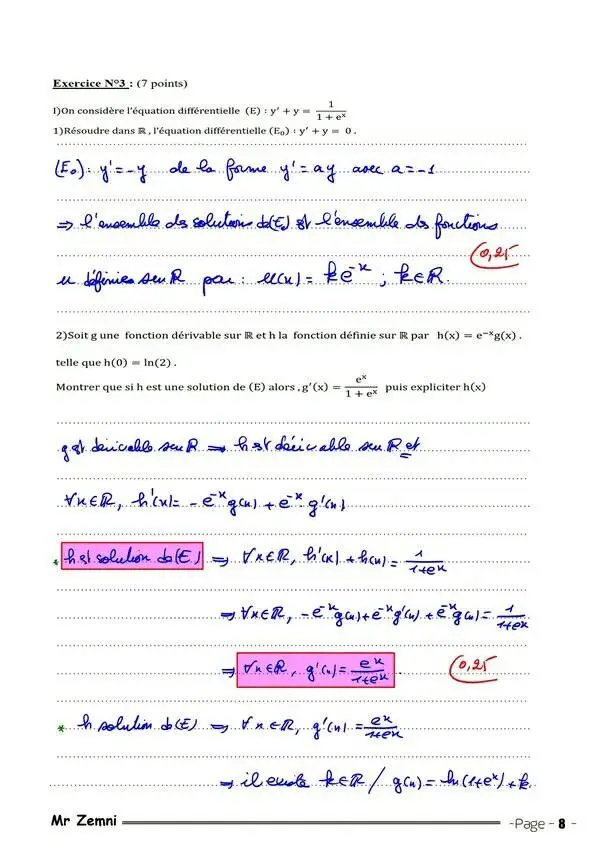 Exercice N°3 : (7 points)
I)On considère l'équation différentielle (E) : y′ + y = 1/(1 + eˣ)
1)Résoudre dans ℝ , l'équation différentielle (E₀) : y′ + y = 0 .
(E₀): y' = -y de la forme y' = ay avec a = -1
⇒ l'ensemble des solutions de (E₀) est l'ensemble des fonctions
0,25
u définies sur ℝ par : u(x) = k e⁻ˣ ; k ∈ ℝ.
2)Soit g une fonction dérivable sur ℝ et h la fonction définie sur ℝ par h(x) = e⁻ˣg(x) .
telle que h(0) = ln(2) .
Montrer que si h est une solution de (E) alors , g′(x) = eˣ/(1 + eˣ) puis expliciter h(x)
g est dérivable sur ℝ ⇒ h est dérivable sur ℝ et
∀x ∈ ℝ, h'(x) = - e⁻ˣ g(x) + e⁻ˣ g'(x)
* h est solution de (E) ⇒ ∀x ∈ ℝ, h'(x) + h(x) = 1/(1+eˣ)
⇒ ∀x ∈ ℝ, - e⁻ˣ g(x) + e⁻ˣ g'(x) + e⁻ˣ g(x) = 1/(1+eˣ)
⇒ ∀x ∈ ℝ, g'(x) = eˣ/(1+eˣ) 0,25
* h solution de (E) ⇒ ∀x ∈ ℝ, g'(x) = eˣ/(1+eˣ)
⇒ il existe k ∈ ℝ / g(x) = ln(1+eˣ) + k.
Mr Zemni -Page - 8 -